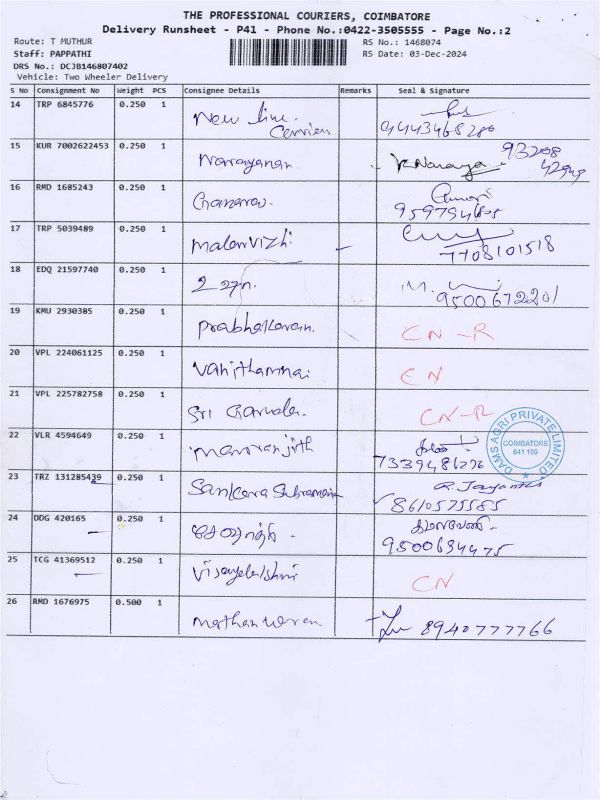 THE PROFESSIONAL COURIERS, COIMBATORE
Delivery Runsheet - P41 - Phone No.:0422-3505555 - Page No.:2
Route: T MUTHUR
RS No.: 1468074
Staff: PAPPATHI
RS Date: 03-Dec-2024
DRS No.: DCJB146807402
Vehicle: Two Wheeler Delivery
S No Consignment No Weight PCS Consignee Details Remarks Seal & Signature
14 TRP 6845776 0.250 1
New line
15 KUR 7002622453 0.250 1
Narayanan. K. Naraya 93208
42949
16 RMD 1685243 0.250 1
17 TRP 5039489 0.250 1
Malarvizhi 7708101518
18 EDQ 21597740 0.250 1
9500672201
19 KMU 2930385 0.250 1
Prabhakaran. CN-R
20 VPL 224061125 0.250 1
CN
21 VPL 225782758 0.250 1
Sri CN-R
22 VLR 4594649 0.250 1
Manoranjith
DAMS AGRI PRIVATE LIMITED
COIMBATORE
641 109
23 TRZ 131285439 0.250 1
R. Jayanthi
8610575585
24 DDG 420165 0.250 1
9500694475
25 TCG 41369512 0.250 1
CN
26 RMD 1676975 0.500 1
8940777766